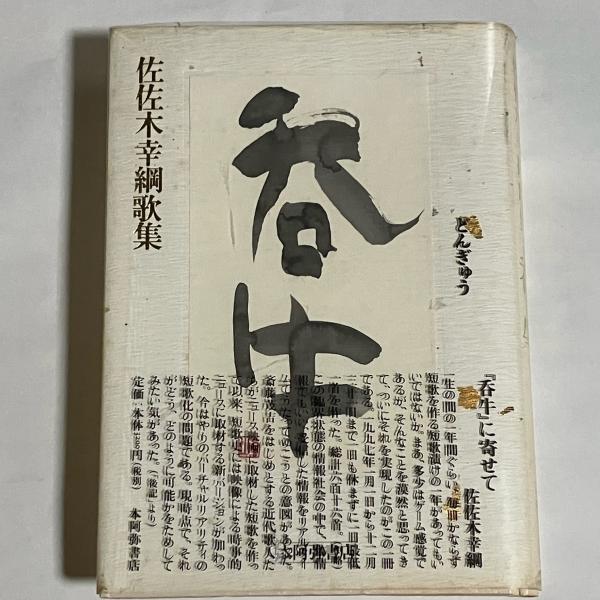 佐佐木幸綱歌集
呑牛
どんぎゅう
『呑牛』に寄せて
佐佐木幸綱
一生の間の一年間ぐらい、毎日かならず
短歌を作る短歌漬けの一年があってもい
いではないか。まあ、多少はゲーム感覚で
あるが、そんなことを漠然と思ってき
て、ついにそれを実現したのがこの一冊
である。一九九七年一月一日から十二月
三十一日まで一日も休まずに一日最低
一首を作った。総計六百十六首。
この臨界状態の情報社会の中で、
報でもいい、受信した情報をリアルタイ
ムでうたってゆこうとの意図があった。
斎藤茂吉をはじめとする近代歌人た
ちがニュース映画に取材した短歌を作っ
て以来、短歌には映像による時事的
ニュースに取材する新バージョンが加わっ
た。今はやりのバーチャルリアリティの
短歌化の問題である。現時点で、それ
がどう、どのように可能かをためして
みたい気があった。(「後記」より)
定価:本体 円(税別) 本阿弥書店